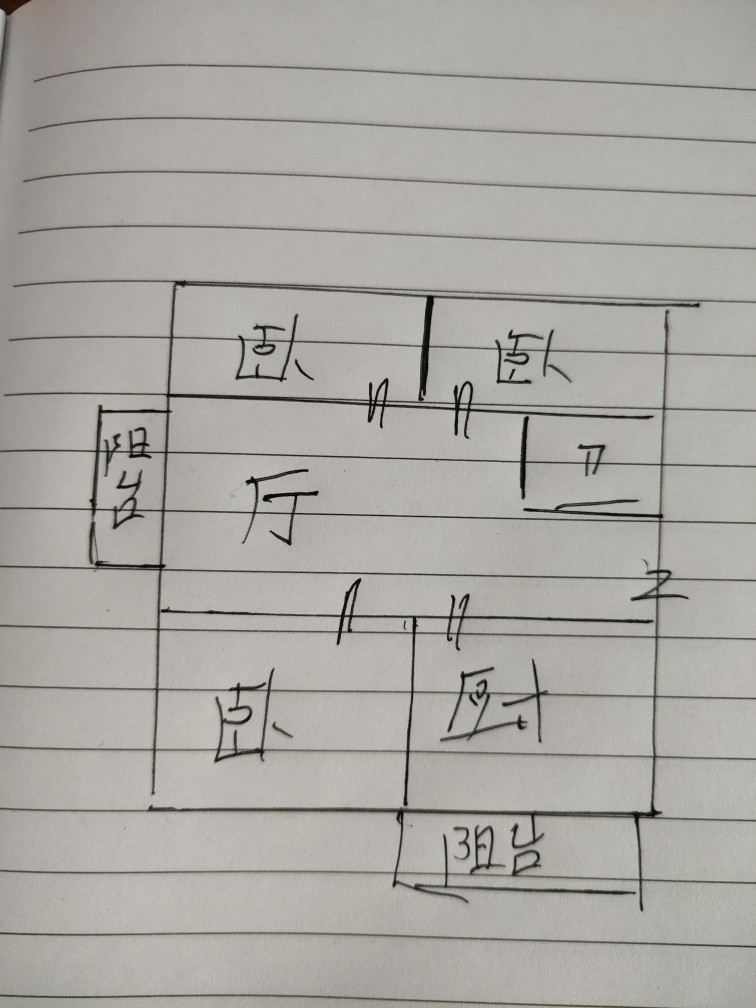 卧
卧
阳台
厅
卫
卧
厨
阳台